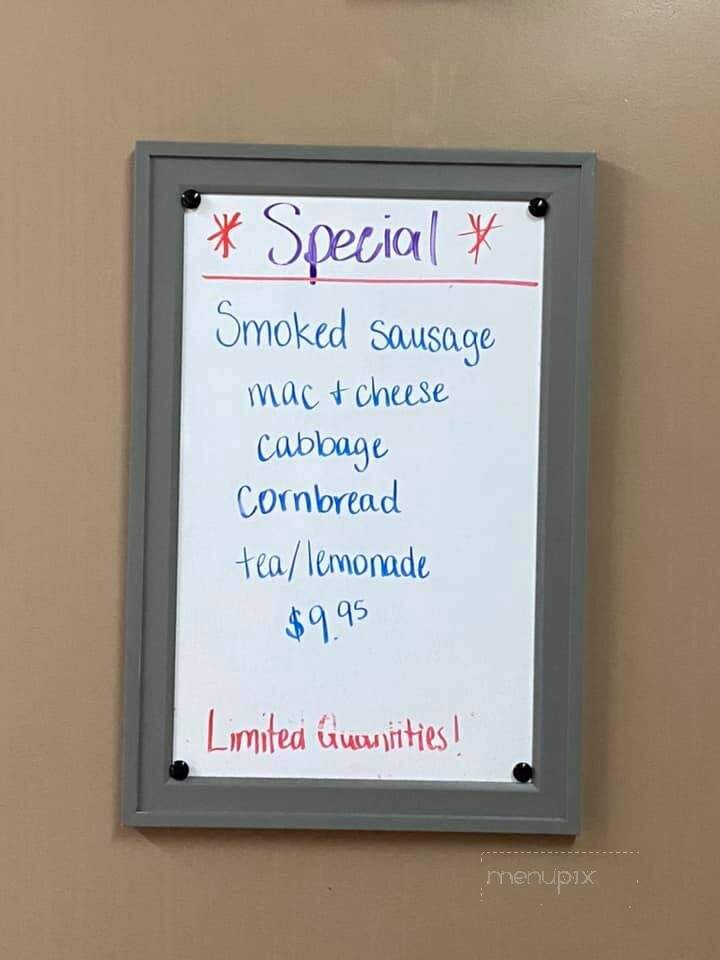 * Special *
Smoked sausage
mac + cheese
cabbage
cornbread
tea/lemonade
$9.95
Limited Quantities!
menupix